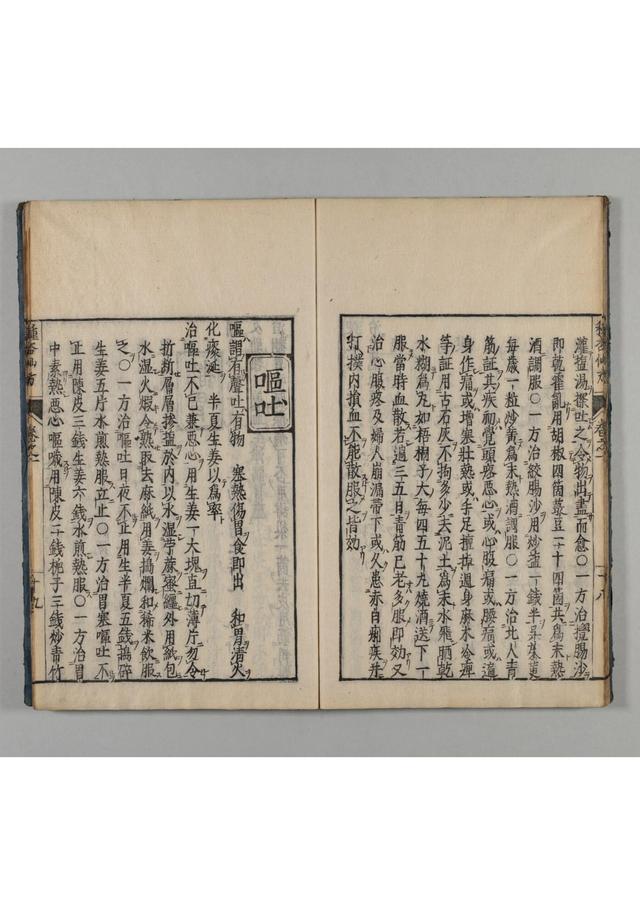 灌塩湯探吐之令物出盡而愈〇一方治攪腸沙
即乾霍亂用胡椒四箇菉豆二十四箇共爲末熱
酒調服〇一方治絞腸沙用炒塩一錢半
毎歳一粒炒黄爲末熱酒調服〇一方治北人青
筋証其疾初覺頭疼惡心或心腹痛或腰痛或遍
身作痛或増寒壯熱或手足
等証用古石灰不拘多少去泥土爲末水飛晒乾
水糊爲丸如梧桐子大毎四五十丸燒酒送下一
服當時血散若過三五日青筋已老多服即効又
治心腹疼及婦人崩漏帶下或久患赤白痢疾并
打撲内損血不能散服之皆効
種杏仙方 卷之一 十八
嘔吐
嘔謂有聲吐有物 寒熱傷胃食即出 和胃清火
化痰涎 半夏生姜以爲率
治嘔吐不已兼惡心用生姜一大塊直切薄片勿令
折斷層層摻塩於内以水湿苧蔴蜜纏外用紙包
水湿火煆令熟取去麻紙用姜搗爛和稀米飲服
之〇一方治嘔吐日夜不止用生半夏五錢搗碎
生姜五片水煎熱服立止〇一方治胃寒嘔吐不
止用陳皮三錢生姜六錢水煎熱服〇一方治胃
中素熱惡心嘔噦用陳皮二錢梔子三錢炒青竹
種杏仙方 卷之一 十九